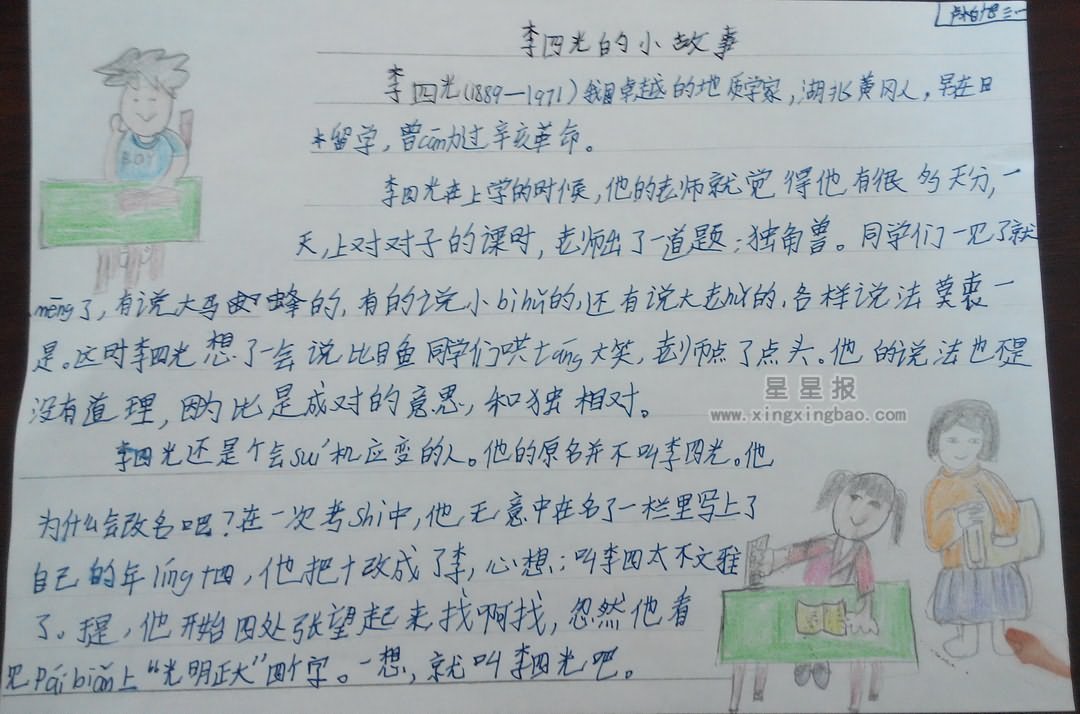 李四光的小故事
李四光(1889—1971)我国卓越的地质学家,湖北黄冈人,早在日
本留学,曾cān加过辛亥革命。
李四光在上学的时候,他的老师就觉得他有很多天分,一
天,上对对子的课时,老师出了一道题:独角兽。同学们一见了就
mēng了,有说大马蜂的,有的说小bìhǔ的,还有说大老hǔ的,各样说法莫衷一
是。这时李四光想了一会说比目鱼同学们哄táng大笑,老师点了点头。他的说法也不是
没有道理,因为比是成对的意思,和独相对。
李四光还是个会suí机应变的人。他的原名并不叫李四光。他
为什么会改名呢?在一次考shì中,他无意中在名了一栏里写上了
自己的年líng十四,他把十改成了李,心想:叫李四太不文雅
了。于是,他开始四处张望起来,找啊找,忽然他看
见Pái biǎn上“光明正大”四个字。一想,就叫李四光吧。
BOY
星星报
www.xingxingbao.com